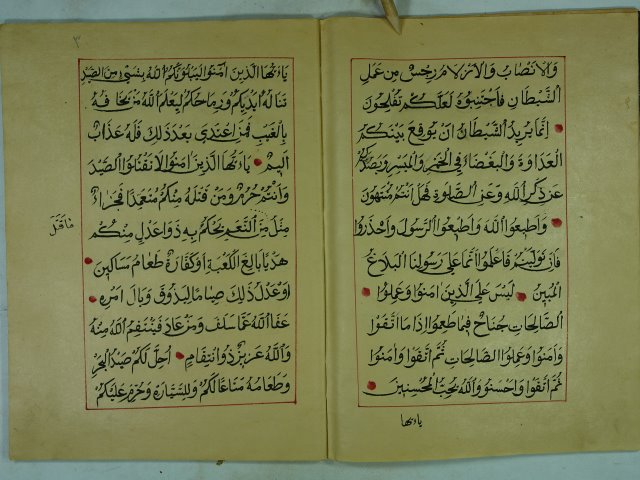 والانصاب والازلام رجس من عمل
الشيطان فاجتنبوه لعلكم تفلحون
انما يريد الشيطان ان يوقع بينكم
العداوة والبغضاء في الخمر والميسر ويصدكم
عن ذكر الله وعن الصلوة فهل انتم منتهون
واطيعوا الله واطيعوا الرسول واحذروا
فان توليتم فاعلموا انما على رسولنا البلاغ
المبين ليس على الذين امنوا وعملوا
الصالحات جناح فيما طعموا اذا ما اتقوا
وامنوا وعملوا الصالحات ثم اتقوا وامنوا
ثم اتقوا واحسنوا والله يحب المحسنين
ياءيها
٣
ياءيها الذين امنوا ليبلونكم الله بشيء من الصيد
تناله ايديكم ورماحكم ليعلم الله من يخافه
بالغيب فمن اعتدى بعد ذلك فله عذاب
اليم ياءيها الذين امنوا لا تقتلوا الصيد
وانتم حرم ومن قتله منكم متعمدا فجزاء
مثل من النعم يحكم به ذوا عدل منكم
ما قتل
هديا بالغ الكعبة او كفارة طعام مساكين
او عدل ذلك صياما ليذوق وبال امره
عفا الله عما سلف ومن عاد فينتقم الله منه
والله عزيز ذو انتقام احل لكم صيد البحر
وطعامه متاعا لكم وللسيارة وحرم عليكم